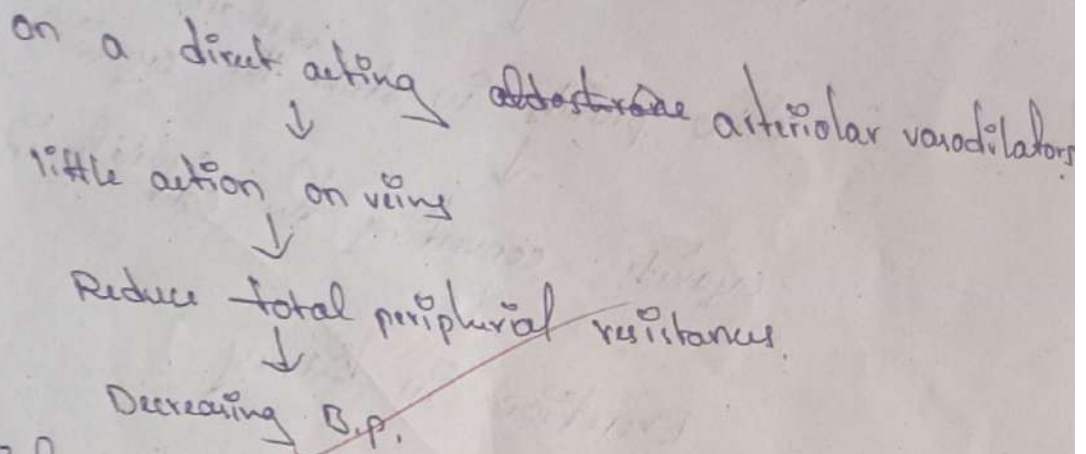 on a direct acting arteriolar vasodilators
↓
little action on veins
↓
Reduce total peripherial resistances.
↓
Decreasing B.p.